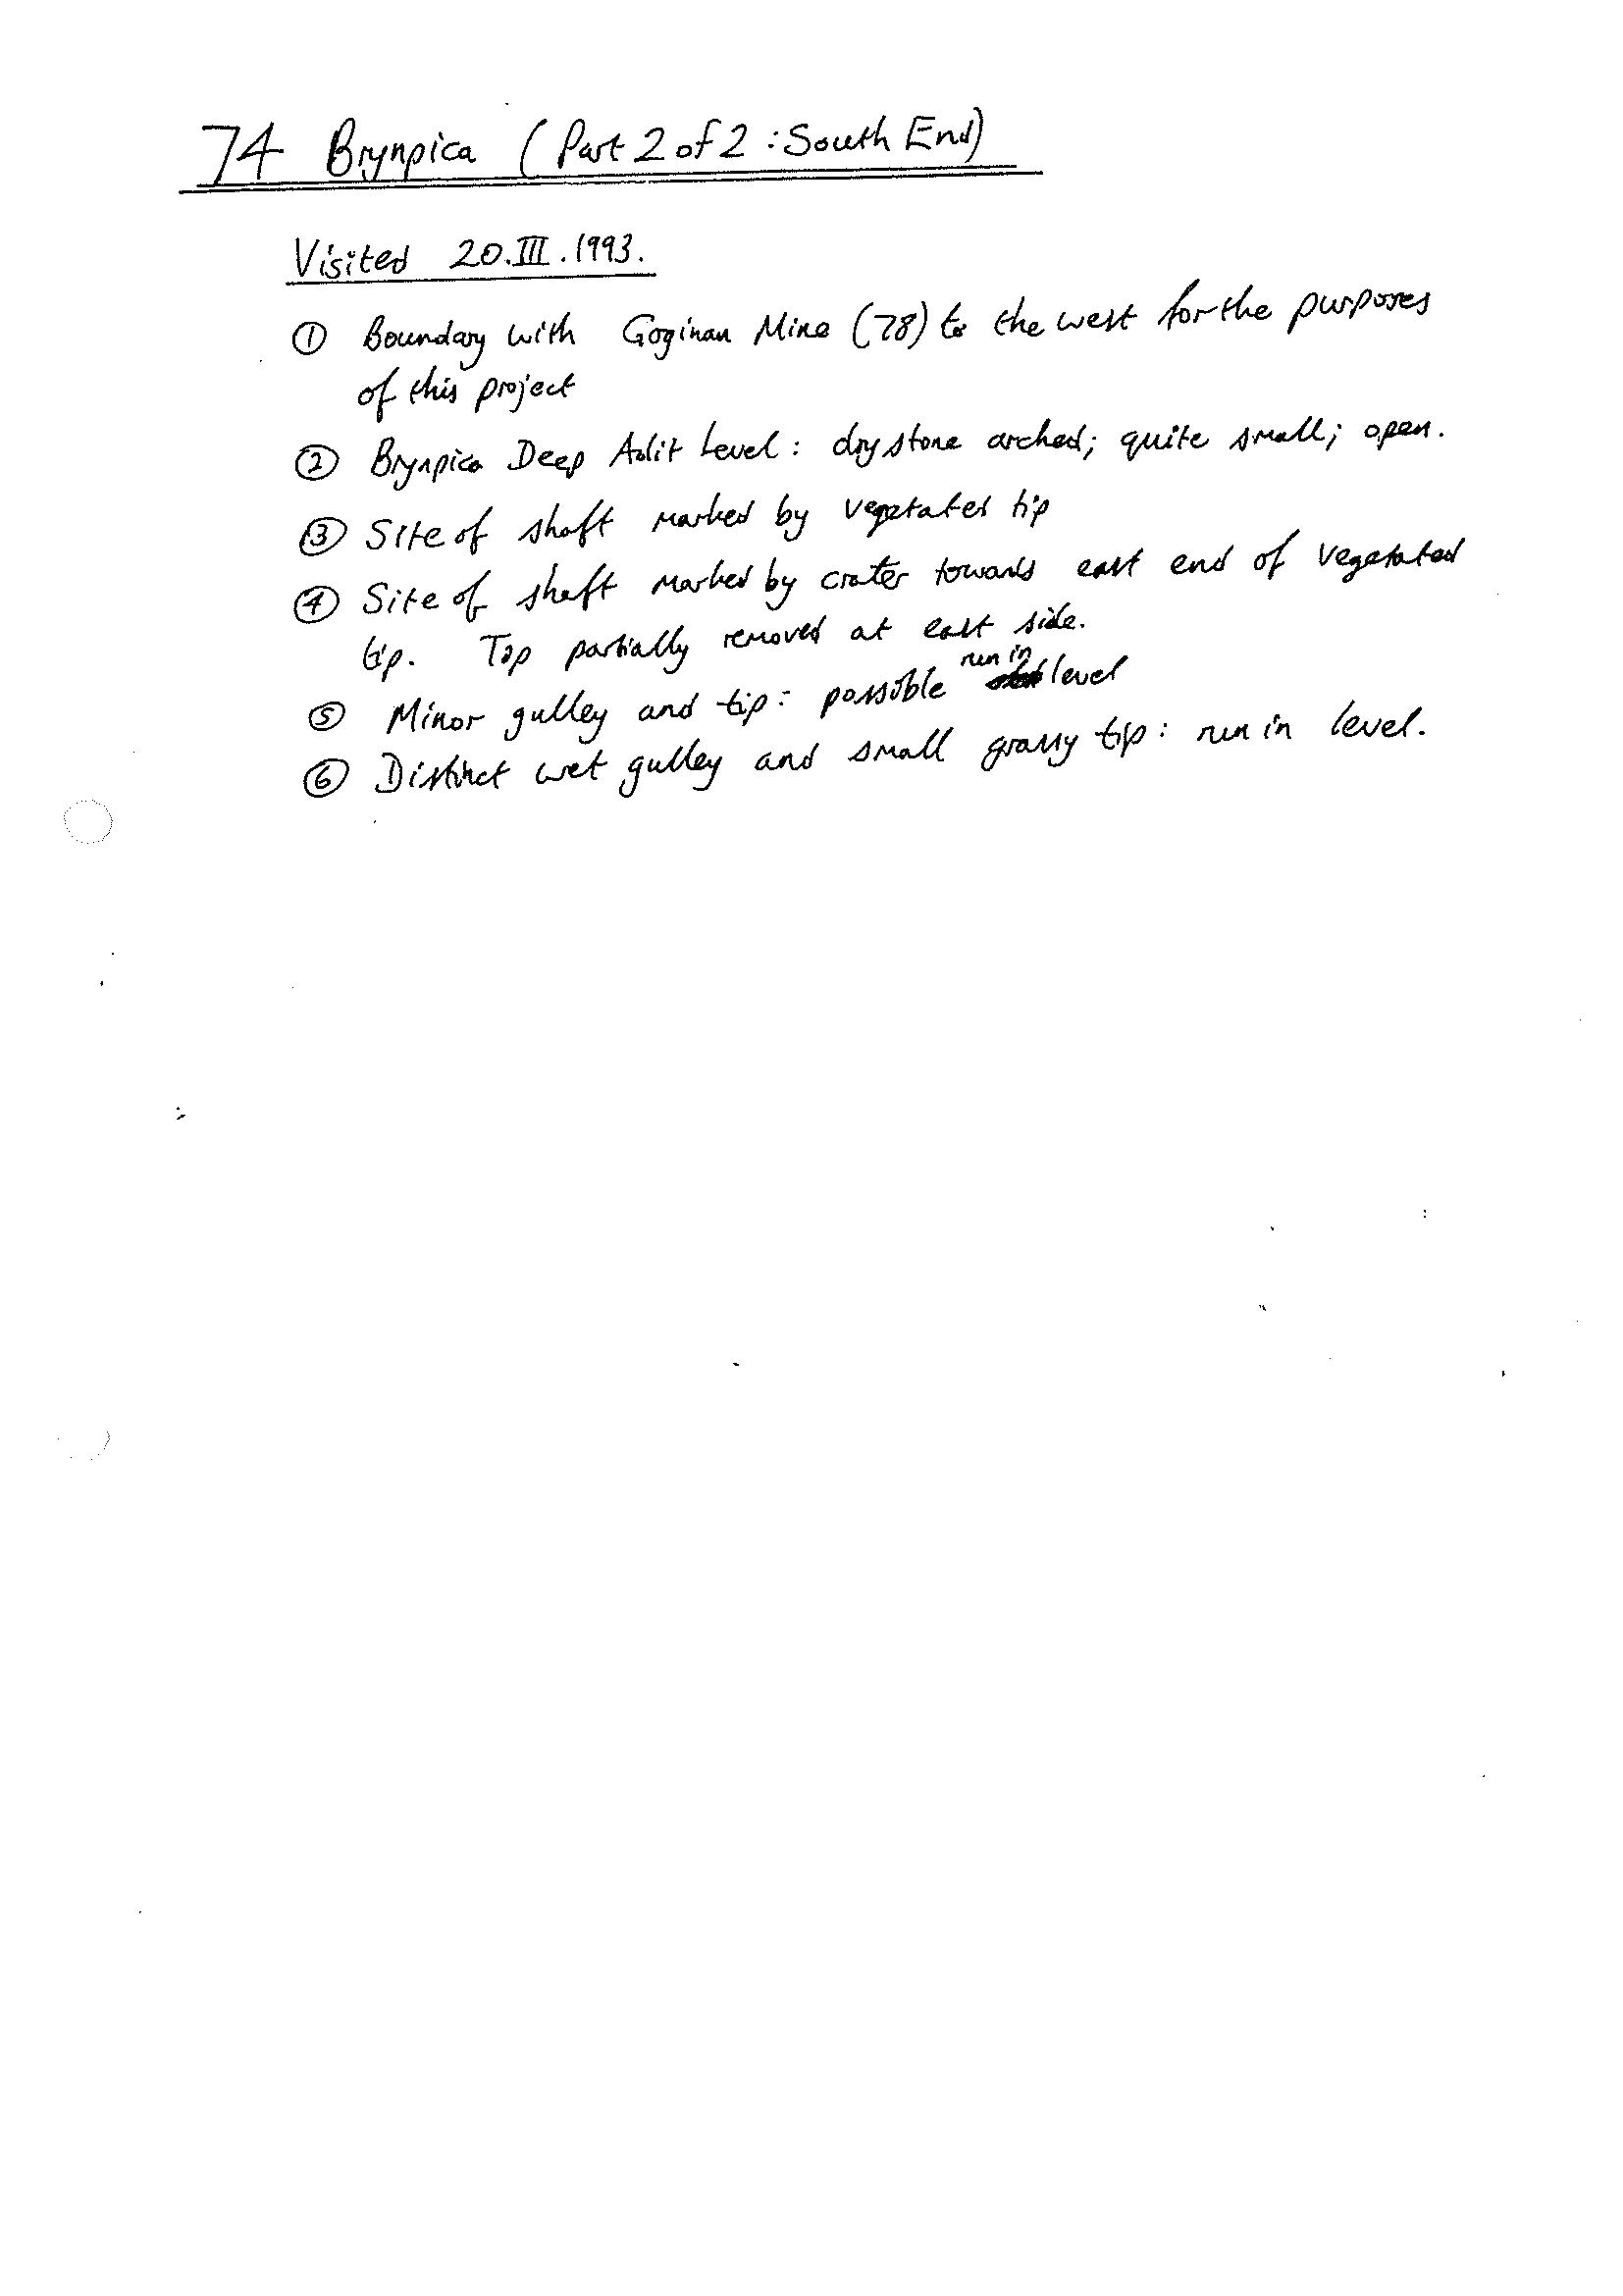 74 Brynpica (Part 2 of 2 : South End)
Visited 20.III.1993.
① Boundary with Goginan Mine (78) to the west for the purposes
of this project
② Brynpica Deep Adit Level : drystone arched; quite small; open.
③ Site of shaft marked by vegetated tip
④ Site of shaft marked by crater towards east end of vegetated
tip. Top partially removed at east side.
⑤ Minor gulley and tip : possible run in level
⑥ Distinct wet gulley and small grassy tip : run in level.